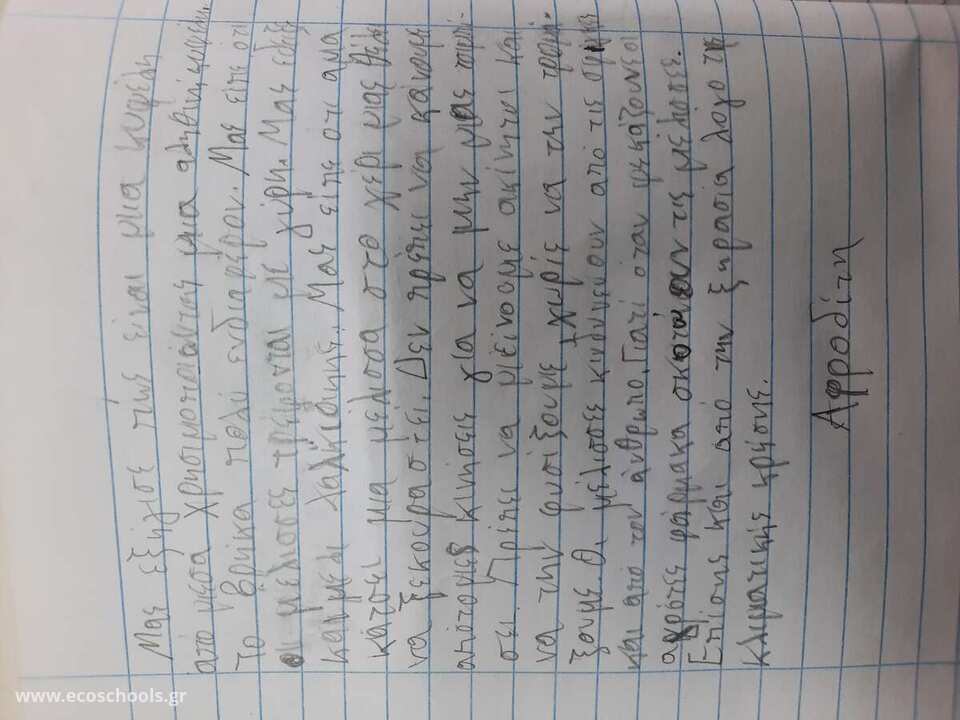 Μας εξήγισε πώς είναι μια κυψέλη
από μεσα χρησιμοποιώντας μια αληθινή κυψέλη.
Το βρήκα πολύ ενδιαφέρον. Μας είπε ότι
οι μέλησες τρέφονται με γύρη. Μας έδειξε
και μελι Χαλκιδικής. Μας είπε οτι αμα
κάτσει μια μέλισσα στο χέρι μας θέλει
να ξεκουραστεί. Δεν πρέπει να κάνουμε
απότομες κινήσεις για να μην μας τσιμπή-
σει. Πρέπει να μείνουμε ακίνητοι και
να την φυσίξουμε χωρίς να την τρομά-
ξουμε. Οι μέλισσες κινδυνεύουν από τις σφήκες
και από τον άνθρωπο. Γιατί όταν ψεκάζουνε οι
αγρότες φάρμακα σκοτώνουν τις μέλισσες.
Επίσης και από την ξηρασία λόγο της
κλιματικής κρίσης.
Αφροδίτη
www.ecoschools.gr